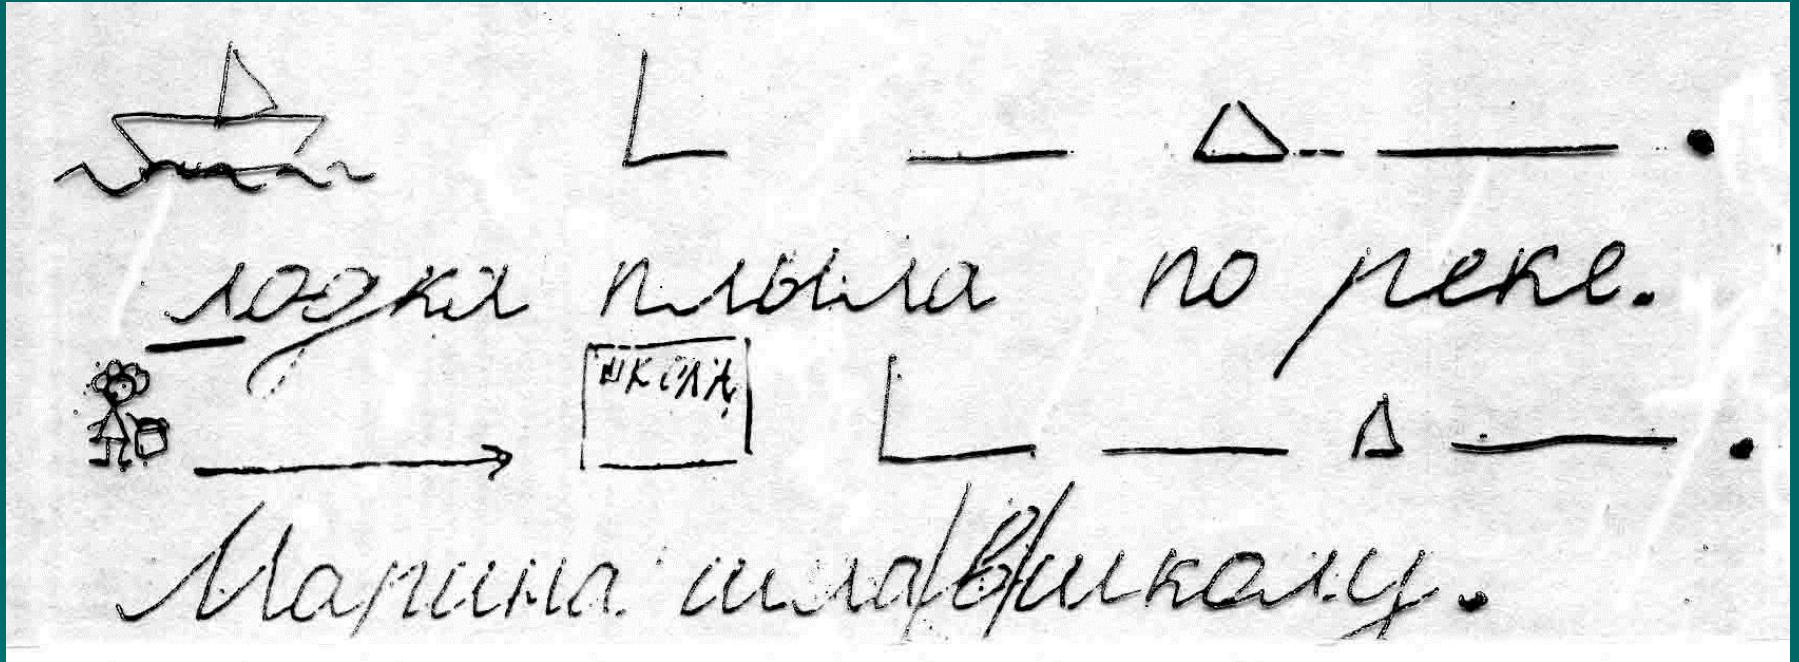 лодка плыла по реке.
ШКОЛА
Марина шла/в/школу.